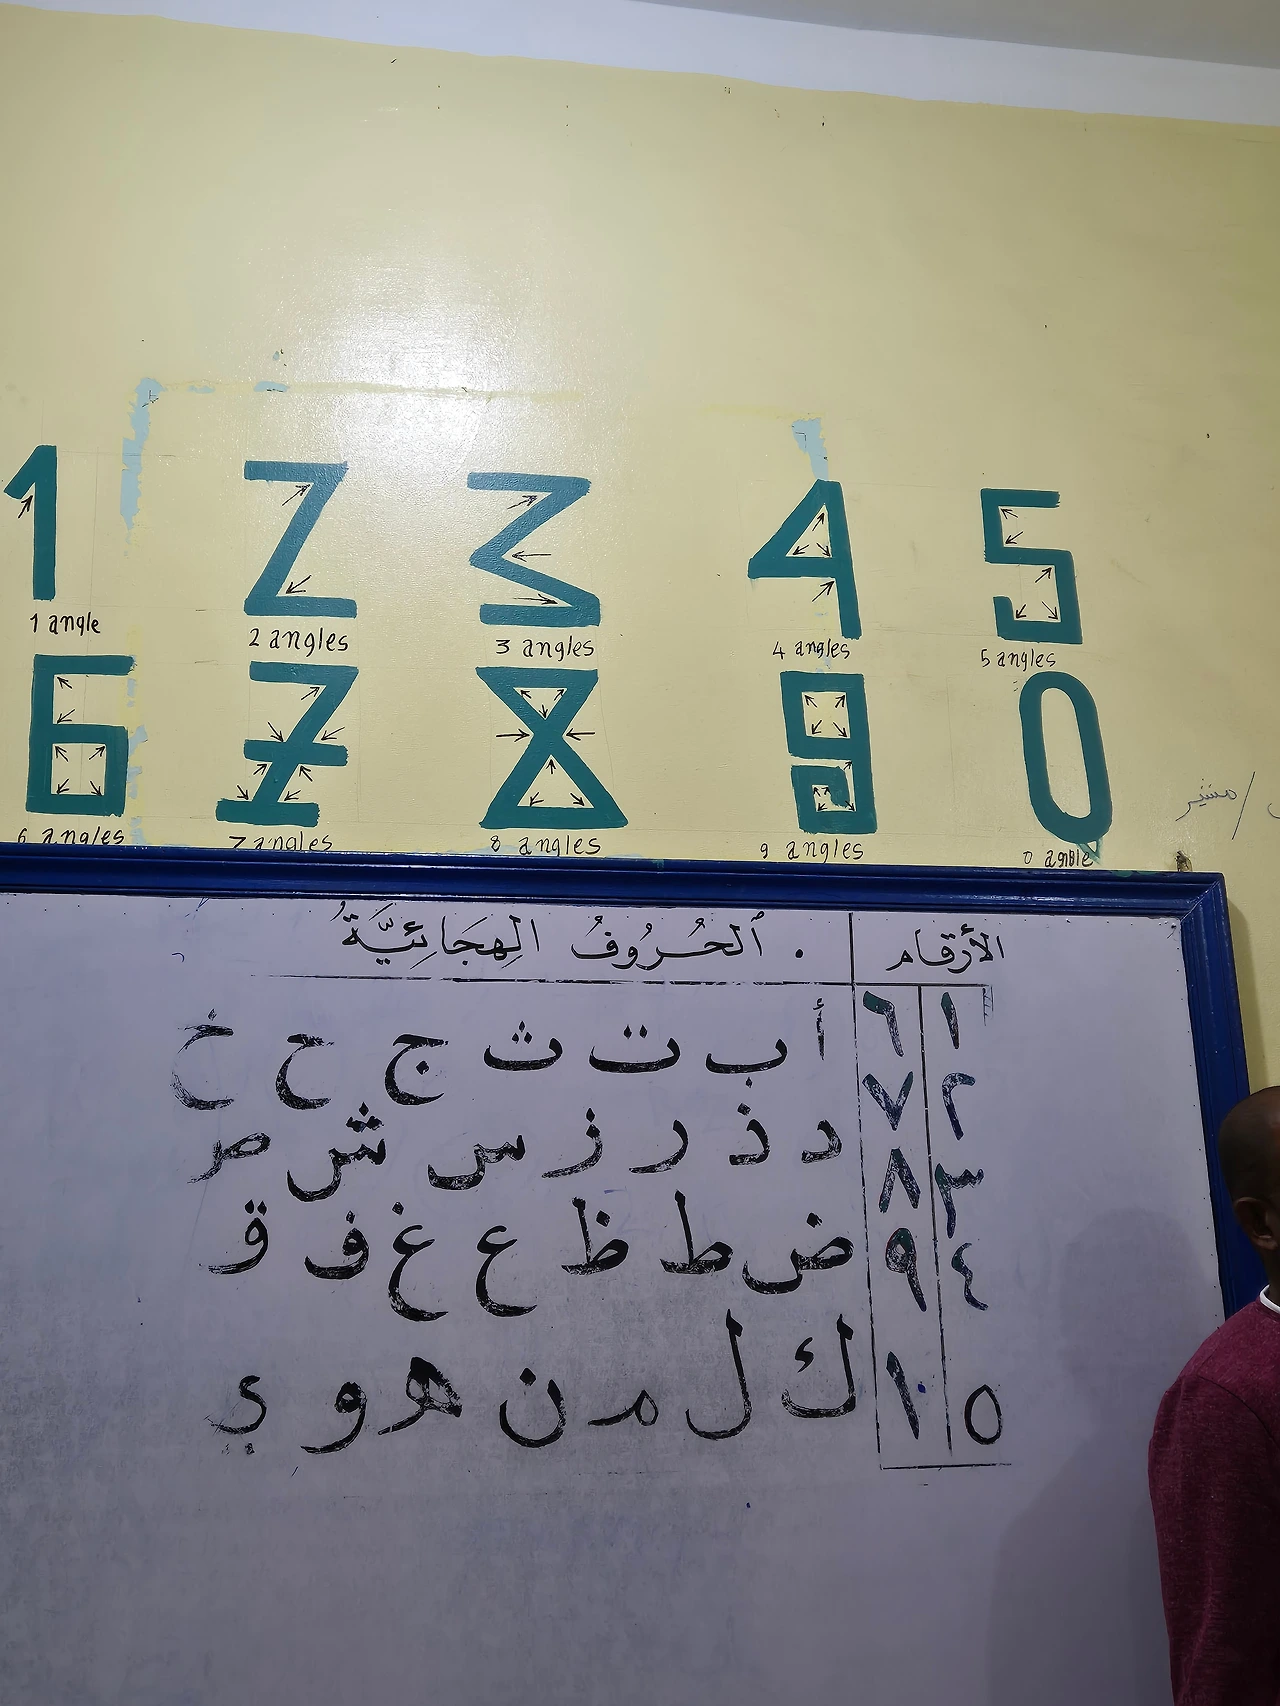 1 2 3 4 5
1 angle 2 angles 3 angles 4 angles 5 angles
6 7 8 9 0
6 angles 7 angles 8 angles 9 angles 0 angle
مشير /
الأرقام
١ ٦
٢ ٧
٣ ٨
٤ ٩
٥ ١٠
. ٱلحُرُوفُ الْهِجَائِيَّةُ
أ ب ت ث ج ح خ
د ذ ر ز س ش ص
ض ط ظ ع غ ف ق
ك ل م ن ه و ي